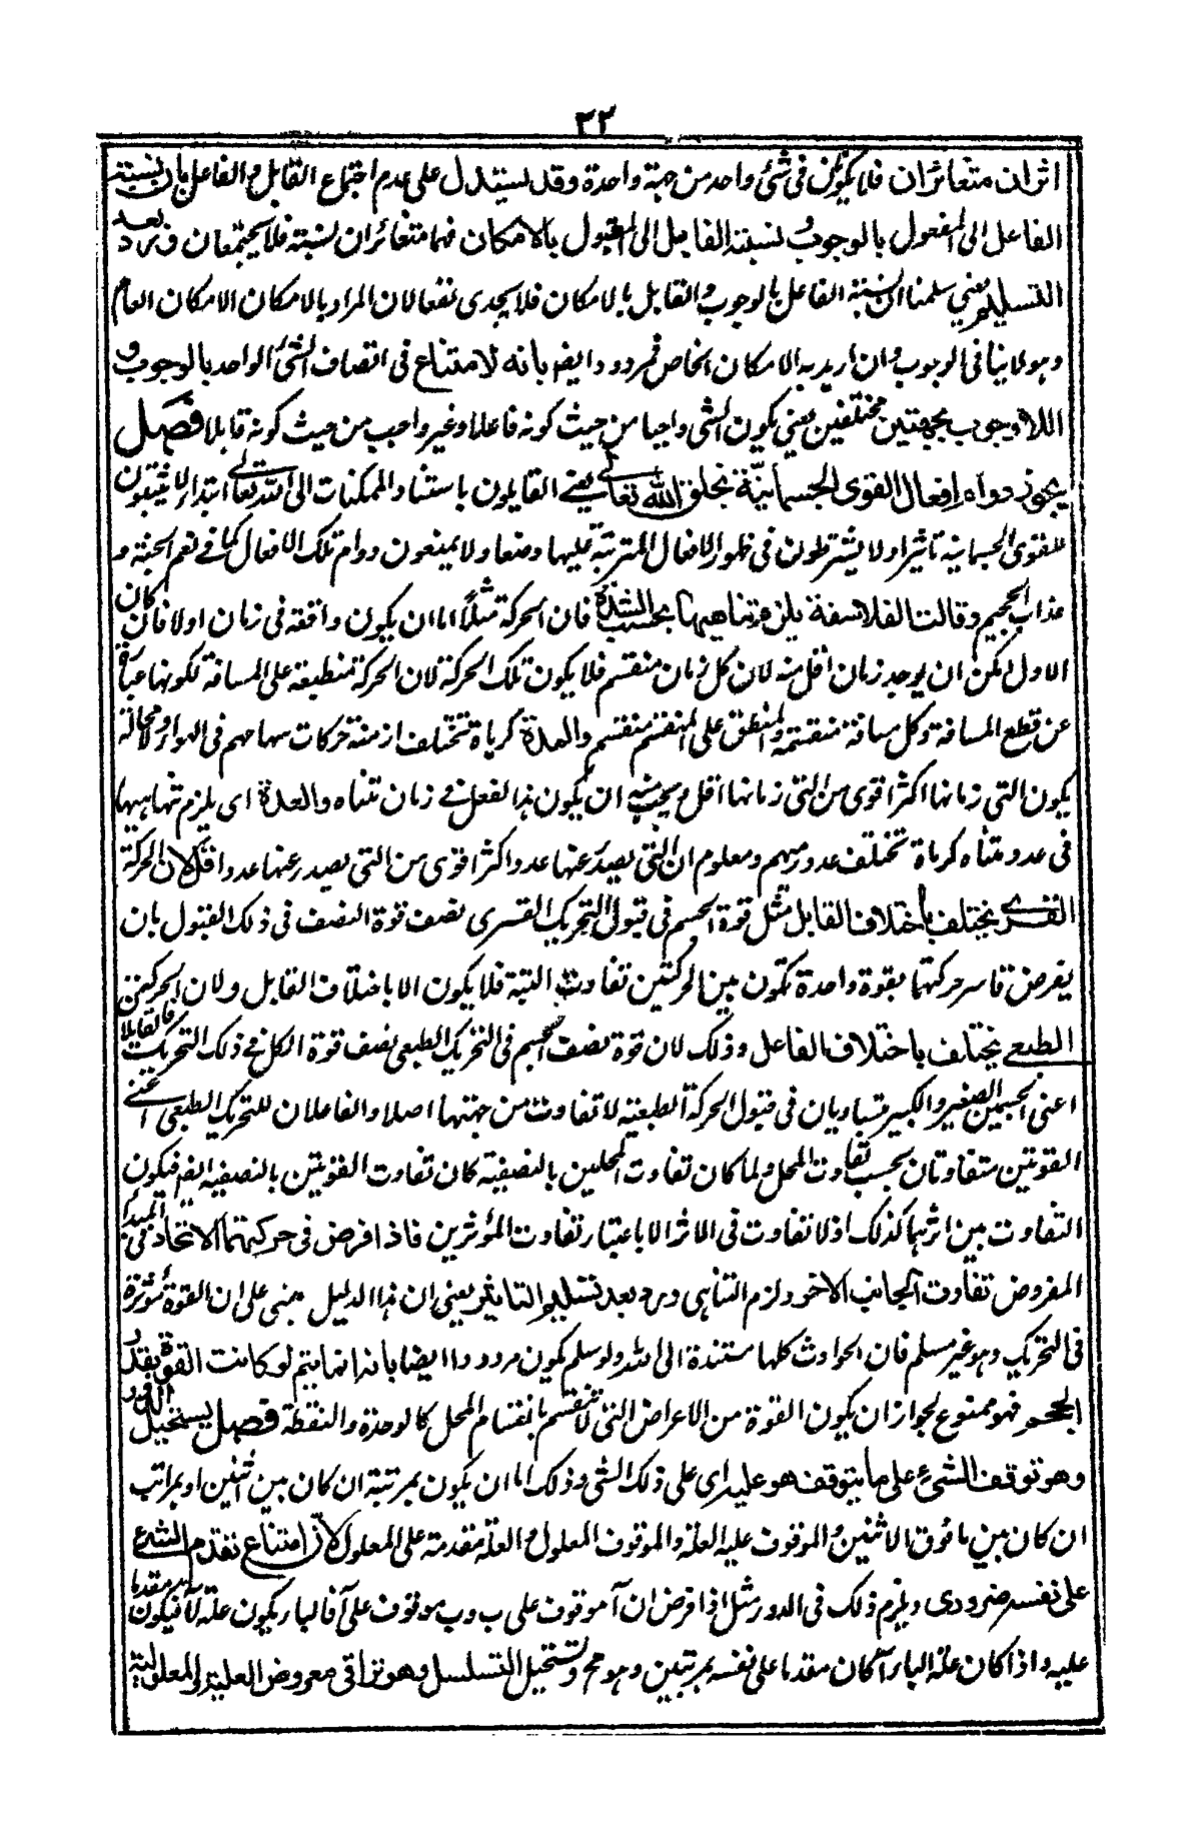 ٣٣
اثران متغائران فلا يكونان فى شئ واحد من جهة واحدة وقد يستدل على عدم اجتماع القابل والفاعل بان نسبة
الفاعل الى المفعول بالوجوب ونسبة القابل الى المقبول بالامكان فهما متغائران نسبة فلا يجتمعان ورد بعد
التسليم يعنى سلمنا ان نسبة الفاعل بالوجوب والقابل بالامكان فلا يجدى نفعا لان المراد بالامكان الامكان العام
وهو لا ينافى الوجوب وان اريد به الامكان الخاص فمردود ايضا بانه لا امتناع فى اتصاف الشئ الواحد بالوجوب و
اللاوجوب بجهتين مختلفين يعنى يكون الشئ واجبا من حيث كونه فاعلا وغير واجب من حيث كونه قابلا فصل
يجوز دوام افعال القوى الجسمانية بخلق الله تعالى يعنى القايلون باستناد الممكنات الى الله تعالى ابتداء لا يثبتون
للقوى الجسمانية تاثيرا ولا يشترطون فى ظهور الافعال المترتبة عليها وضعا ولا يمنعون دوام تلك الافعال كما فى نعيم الجنة و
عذاب الجحيم وقالت الفلاسفة يلزم تناهيها بحسب الشدة فان الحركة مثلا اما ان يكون واقفة فى زمان اولا فان كان
الاول يمكن ان يوجد زمان اقل منه لان كل زمان منقسم فلا يكون تلك الحركة لان الحركة منطبقة على المسافة لكونها عبارة
عن قطع المسافة وكل مسافة منقسمة والمنطبق على المنقسم منقسم والمدة كرماة تختلف ازمنة حركات سهامهم فى الهواء ولا محالة
يكون التى زمانها اكثر اقوى من التى زمانها اقل ويجب ان يكون هذا الفعل فى زمان متناه والعدة اى يلزم تناهيها
فى عدد متناه كرماة تختلف عدد رميهم ومعلوم ان التى يصدر عنها عدد اكثر اقوى من التى يصدر عنها عدد اقل لان الحركة
القسرى يختلف باختلاف القابل مثل قوة الجسم فى قبول التحريك القسرى نصف قوة النصف فى ذلك القبول بان
يفرض قاسر حركتهما بقوة واحدة تكون بين الحركتين تفاوت البتة فلا يكون الا باختلاف القابل ولان الحركتين
الطبعى يختلف باختلاف الفاعل وذلك لان قوة نصف الجسم فى التحريك الطبعى نصف قوة الكل فى ذلك التحريك فالقابلا
اعنى الجسمين الصغير والكبير متساويان فى قبول الحركة الطبعية لا تفاوت من جهتها اصلا والفاعلان للتحريك الطبعى اعنى
القوتين متفاوتان بحسب تفاوت المحل ولما كان تفاوت المحلين بالنصفية كان تفاوت القوتين بالنصفية ايضا فيكون
التفاوت بين اثريهما كذلك اذ لا تفاوت فى الاثر الا باعتبار تفاوت المؤثرين فاذا فرض فى حركتهما الاتحاد فى المبدا
المفروض تفاوت الجانب الاخر ولزم التناهى ورد بعد تسليم التاثير يعنى ان هذا الدليل مبنى على ان القوة مؤثرة
فى التحريك وهو غير مسلم فان الحوادث كلها مستندة الى الله ولو سلم يكون مردودا ايضا بانه انما يتم لو كانت القوة بقدر
الجسم وهو ممنوع لجواز ان يكون القوة من الاعراض التى لا تنقسم بانقسام المحل كالوحدة والنقطة فصل يستحيل الدور
وهو توقف الشئ على ما يتوقف هو عليه اى على ذلك الشئ وذلك اما ان يكون بمرتبة ان كان بين اثنين او بمراتب
ان كان بين ما فوق الاثنين والموقوف عليه العلة والموقوف المعلول والعلة مقدمة على المعلول لان امتناع تقدم الشئ
على نفسه ضرورى ويلزم ذلك فى الدور مثل اذا فرض ان آ موقوف على ب وب موقوف على آ فالباء يكون علة لآ فيكون مقدما
عليه واذا كان علة الباء آ كان مقدما على نفسه بمرتبتين وهو مح ويستحيل التسلسل وهو تراقى معروض العلية والمعلولية